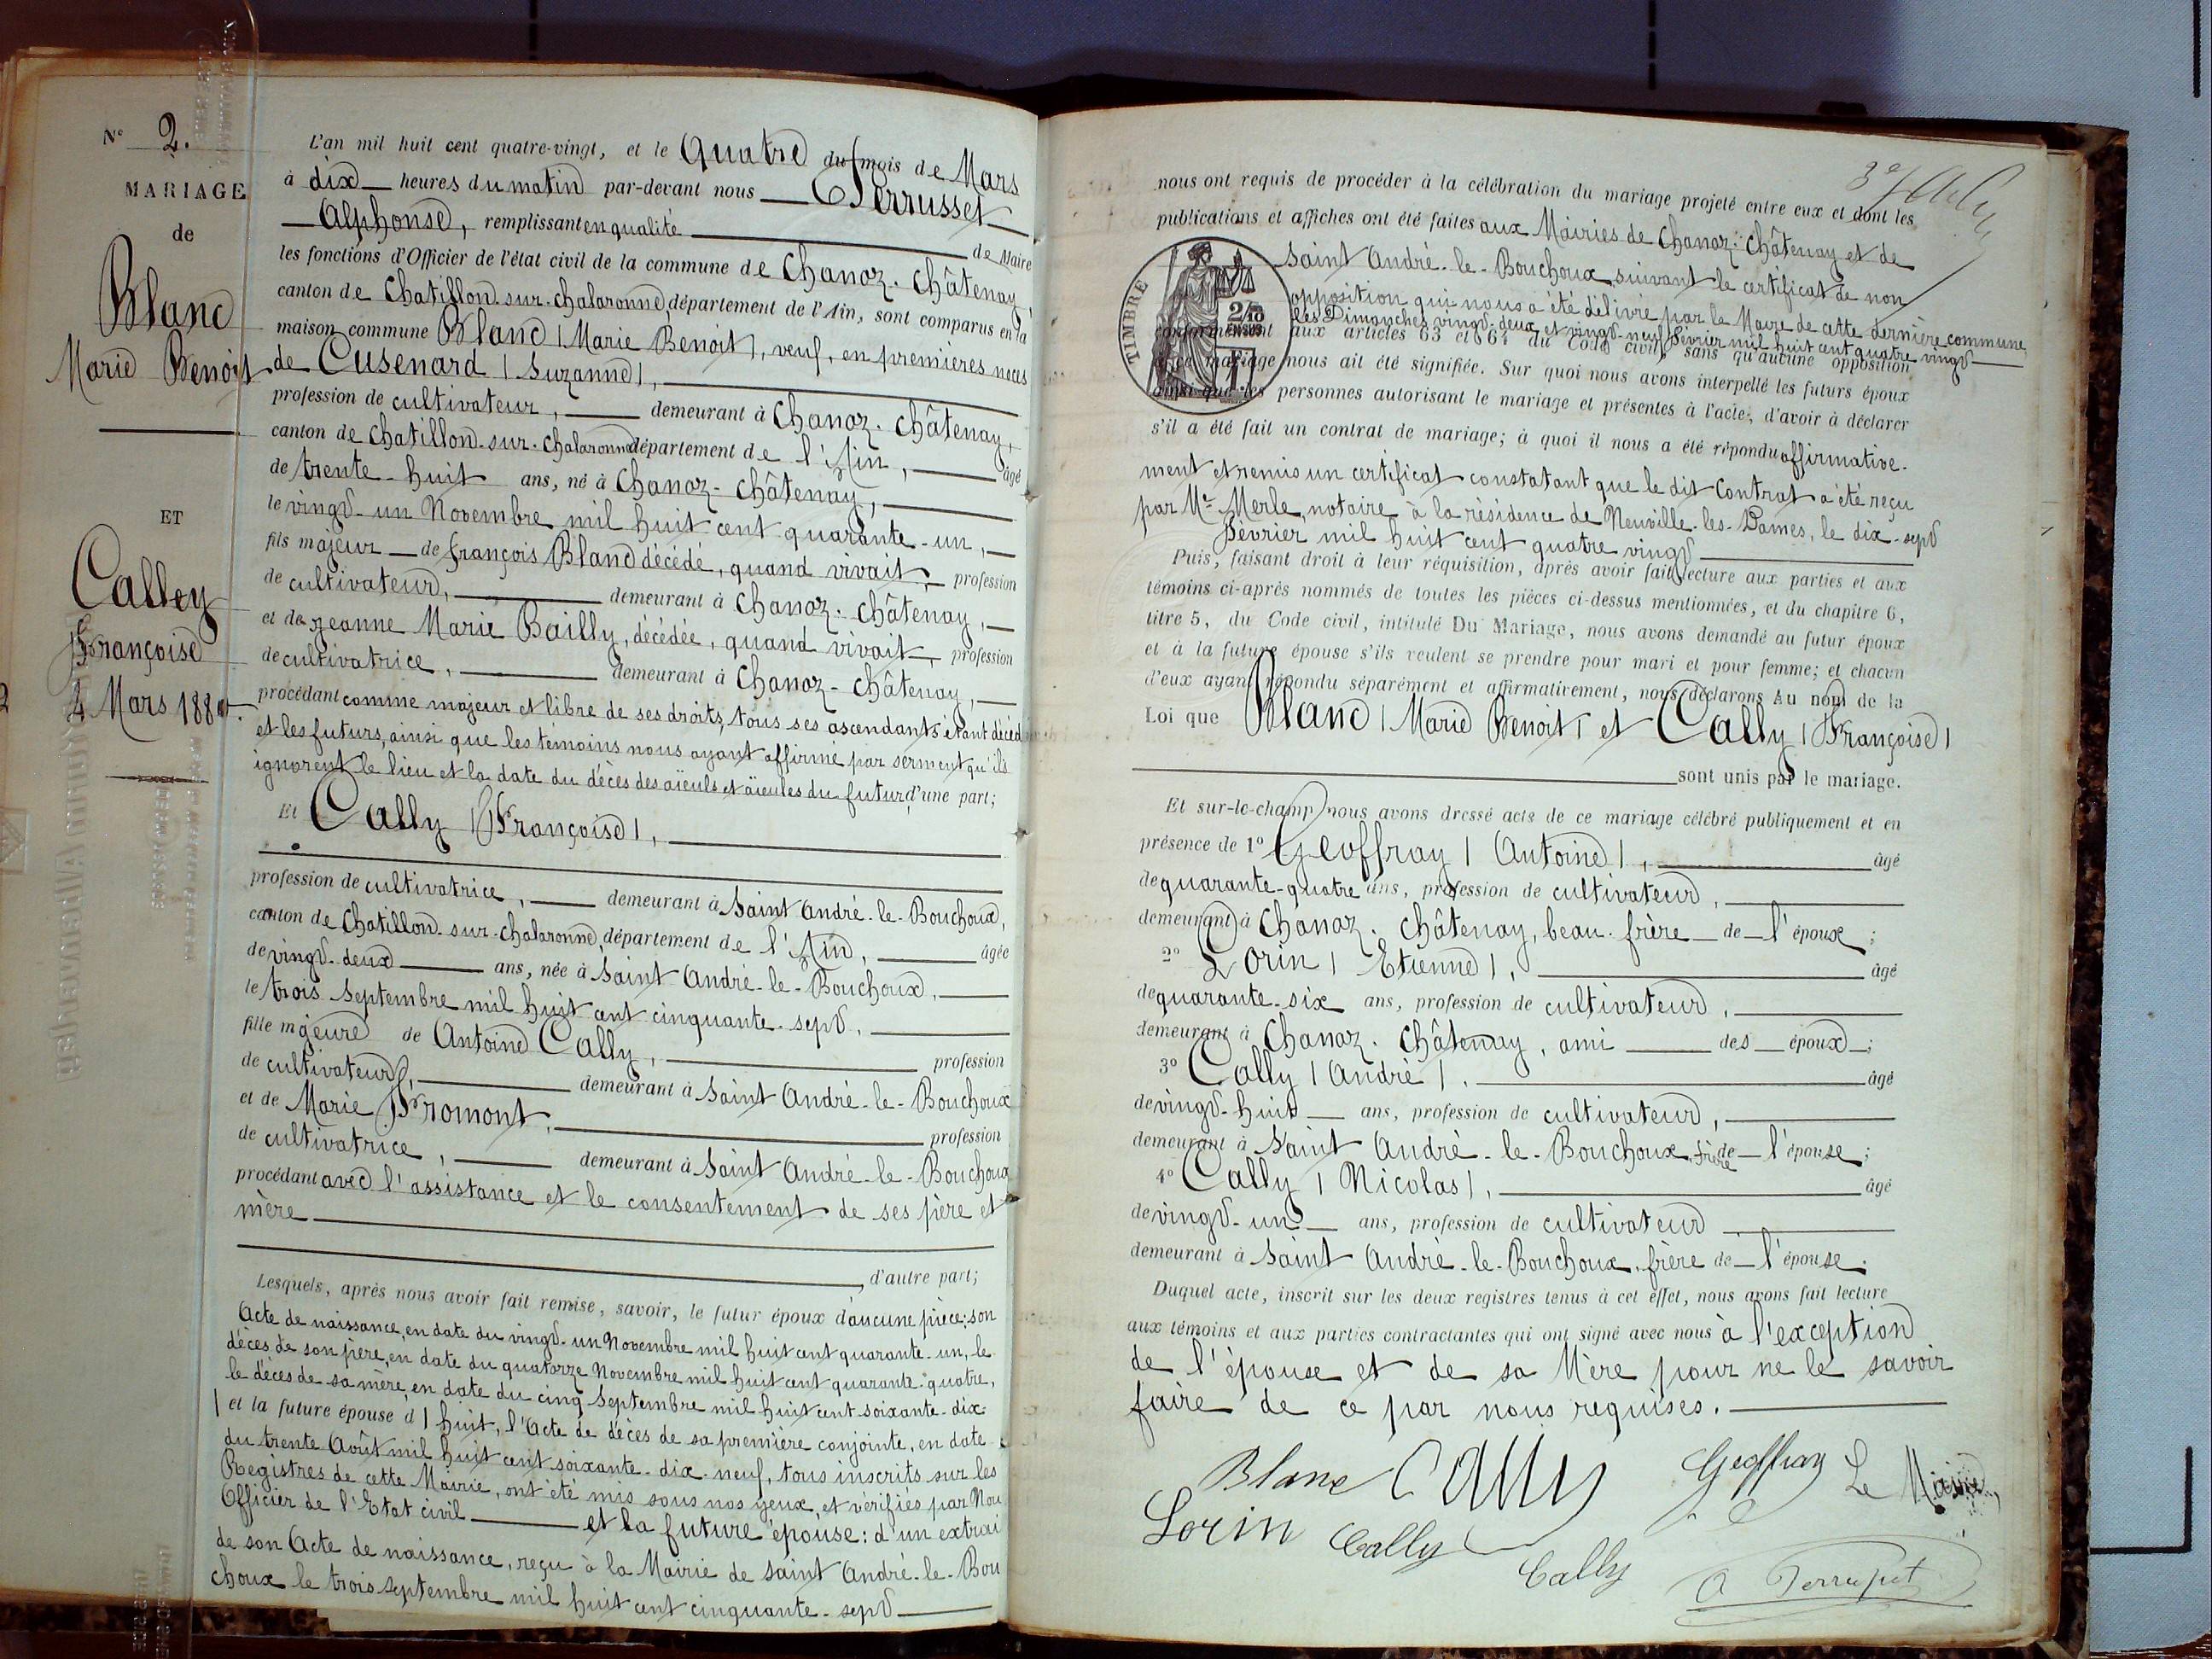 N° 2.
MARIAGE
de
Blanc
Marie Benoit
ET
Calley
Françoise
4 Mars 1880.
L'an mil huit cent quatre-vingt, et le Quatre du mois de Mars
à dix heures du matin par-devant nous Perrusset
Alphonse, remplissant en qualité de Maire
les fonctions d'Officier de l'état civil de la commune de Chanoz-Châtenay
canton de Chatillon-sur-Chalaronne, département de l'Ain, sont comparus en la
maison commune Blanc (Marie Benoit), veuf, en premières noces
de Cusenard (Suzanne),
profession de cultivateur, demeurant à Chanoz-Châtenay,
canton de Chatillon-sur-Chalaronne département de l'Ain, âgé
de trente-huit ans, né à Chanoz-Châtenay,
le vingt-un Novembre mil huit cent quarante-un,
fils majeur de François Blanc décédé, quand vivait, profession
de cultivateur, demeurant à Chanoz-Châtenay,
et de Jeanne Marie Bailly, décédée, quand vivait profession
de cultivatrice, demeurant à Chanoz-Châtenay,
procédant comme majeur et libre de ses droits, tous ses ascendants étant décéd
et les futurs, ainsi que les temoins nous ayant affirmé par serment qu'ils
ignorent le lieu et la date du décès des aïeuls et aïeules du futur, d'une part;
Et Cally (Françoise),
profession de cultivatrice, demeurant à Saint André-le-Bouchoux,
canton de Chatillon-sur-Chalaronne, département de l'Ain, âgée
de vingt-deux ans, née à Saint André-le-Bouchoux,
le trois Septembre mil huit cent cinquante-sept,
fille majeure de Antoine Cally, profession
de cultivateur, demeurant à Saint André-le-Bouchoux
et de Marie Fromont, profession
de cultivatrice, demeurant à Saint André-le-Bouchoux
procédant avec l'assistance et le consentement de ses père et
mère
d'autre part;
Lesquels, après nous avoir fait remise, savoir, le futur époux d'aucune pièce; son
Acte de naissance, en date du vingt-un Novembre mil huit cent quarante-un, le
décès de son père, en date du quatorze Novembre mil huit cent quarante-quatre,
le décès de sa mère, en date du cinq Septembre mil huit cent soixante-dix-
| et la future épouse d | huit, l'Acte de décès de sa première conjointe, en date
du trente Août mil huit cent soixante-dix-neuf, tous inscrits sur les
Registres de cette Mairie, ont été mis sous nos yeux, et vérifiés par Nou
Officier de l'Etat civil et la future épouse: d'un extrai
de son Acte de naissance, reçu à la Mairie de Saint André-le-Bou
choux le trois septembre mil huit cent cinquante-sept
nous ont requis de procéder à la célébration du mariage projeté entre eux et dont les
publications et affiches ont été faites aux Mairies de Chanoz-Châtenay et de
Saint André-le-Bouchoux suivant le certificat de non
opposition qui nous a été délivré par le Maire de cette dernière commune
les Dimanches vingt-deux et vingt-neuf Février mil huit cent quatre vingt
conformément aux articles 63 et 64 du Code civil, sans qu'aucune opposition
mariage nous ait été signifiée. Sur quoi nous avons interpellé les futurs époux
ainsi que les personnes autorisant le mariage et présentes à l'acte, d'avoir à déclarer
TIMBRE
s'il a été fait un contrat de mariage; à quoi il nous a été répondu affirmative-
ment et remis un certificat constatant que le dit Contrat a été reçu
par Me Merle, notaire à la résidence de Neuville-les-Dames, le dix-sept
Février mil huit cent quatre vingt
Puis, faisant droit à leur réquisition, après avoir fait lecture aux parties et aux
témoins ci-après nommés de toutes les pièces ci-dessus mentionnées, et du chapitre 6,
titre 5, du Code civil, intitulé Du Mariage, nous avons demandé au futur époux
et à la future épouse s'ils veulent se prendre pour mari et pour femme; et chacun
d'eux ayant répondu séparément et affirmativement, nous déclarons au nom de la
Loi que Blanc (Marie Benoit) et Cally (Françoise)
sont unis par le mariage.
Et sur-le-champ nous avons dressé acte de ce mariage célébré publiquement et en
présence de 1° Geoffray (Antoine), âgé
de quarante-quatre ans, profession de cultivateur,
demeurant à Chanoz-Châtenay, beau-frère de l'époux;
2° Lorin (Etienne), âgé
de quarante-six ans, profession de cultivateur,
demeurant à Chanoz-Châtenay, ami des époux;
3° Cally (André), âgé
de vingt-huit ans, profession de cultivateur,
demeurant à Saint André-le-Bouchoux, frère de l'épouse;
4° Cally (Nicolas), âgé
de vingt-un ans, profession de cultivateur
demeurant à Saint André-le-Bouchoux, frère de l'épouse.
Duquel acte, inscrit sur les deux registres tenus à cet effet, nous avons fait lecture
aux témoins et aux parties contractantes qui ont signé avec nous à l'exception
de l'épouse et de sa Mère pour ne le savoir
faire de ce par nous requises.
Blanc Cally Geoffray Le Maire,
Lorin Cally
Cally A Perrusset